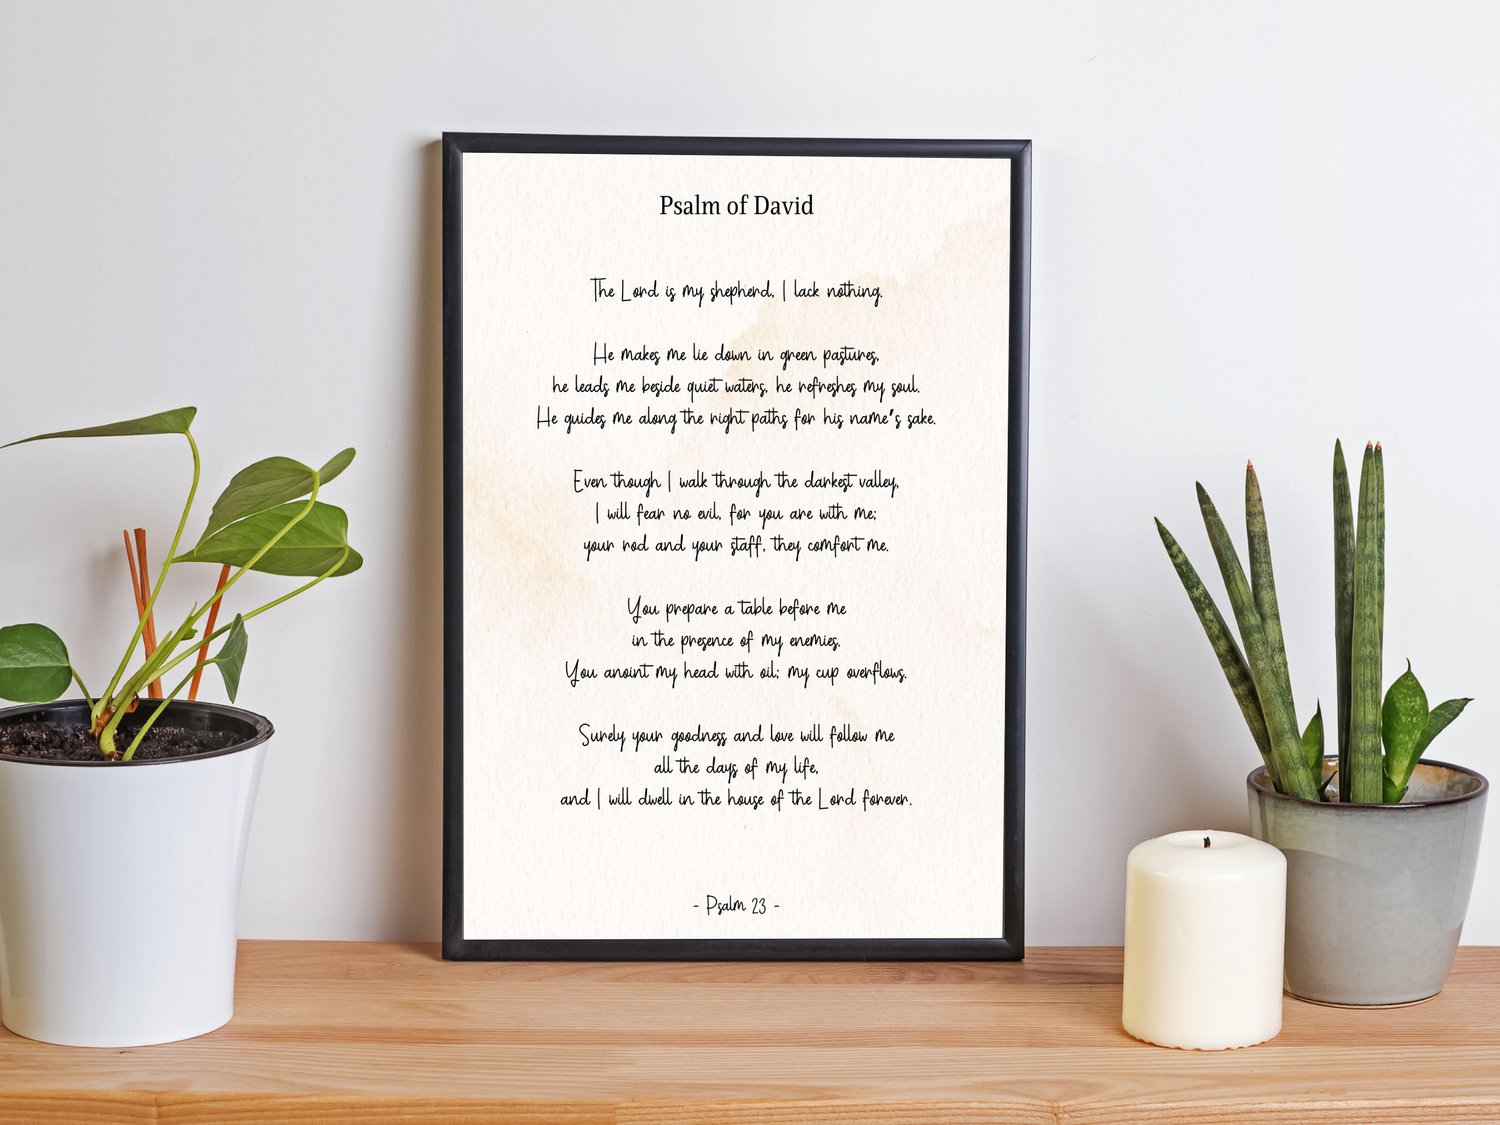 Psalm of David
The Lord is my shepherd, I lack nothing.
He makes me lie down in green pastures,
he leads me beside quiet waters, he refreshes my soul.
He guides me along the right paths for his name's sake.
Even though I walk through the darkest valley,
I will fear no evil, for you are with me;
your rod and your staff, they comfort me.
You prepare a table before me
in the presence of my enemies.
You anoint my head with oil; my cup overflows.
Surely your goodness and love will follow me
all the days of my life,
and I will dwell in the house of the Lord forever.
- Psalm 23 -